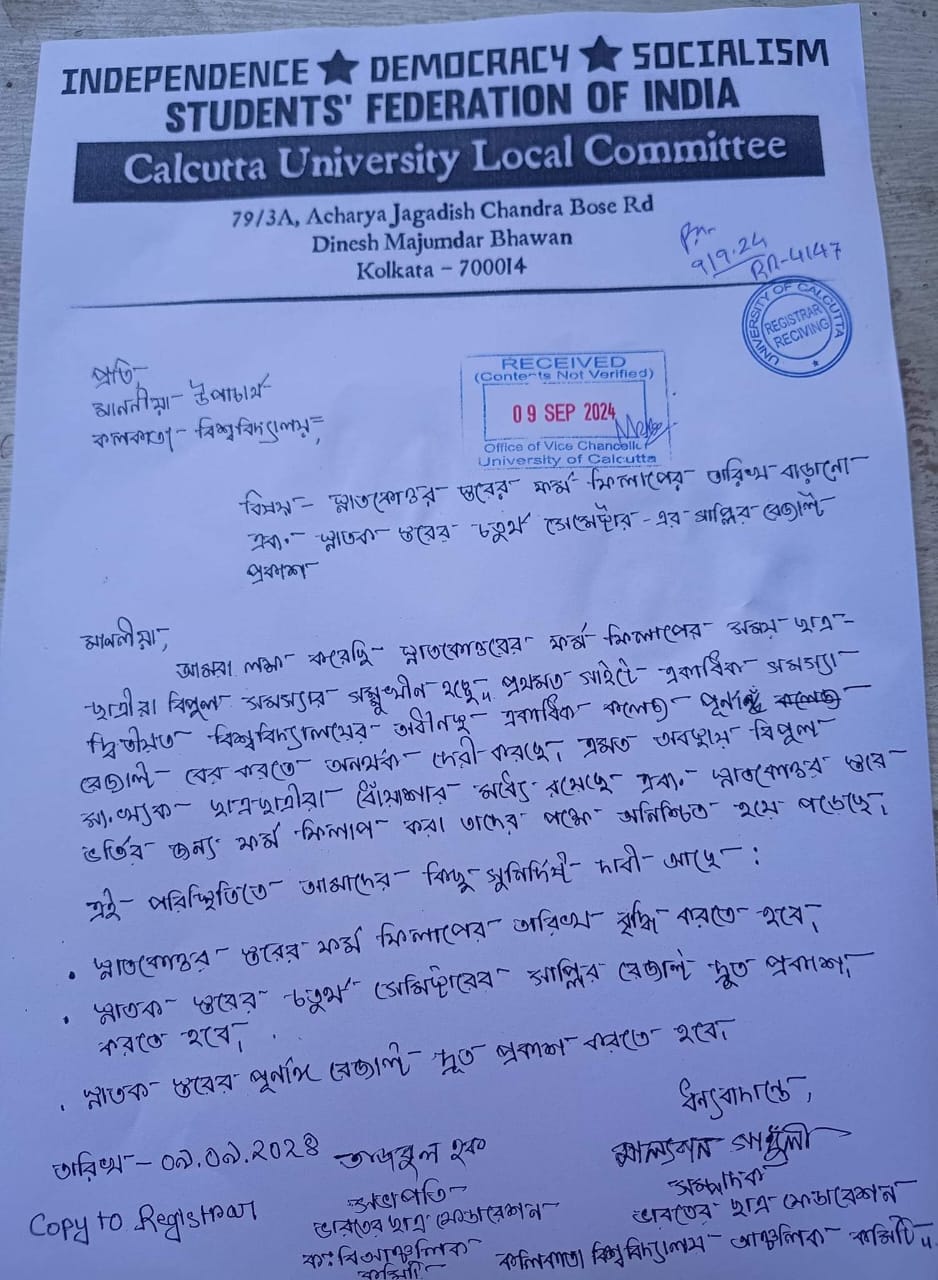 INDEPENDENCE ★ DEMOCRACY ★ SOCIALISM
STUDENTS' FEDERATION OF INDIA
Calcutta University Local Committee
79/3A, Acharya Jagadish Chandra Bose Rd
Dinesh Majumdar Bhawan
Kolkata – 700014
9/9.24
RN-4147
UNIVERSITY OF CALCUTTA
REGISTRAR
RECIVING
প্রতি,
মাননীয়া উপাচার্য
কলকাতা বিশ্ববিদ্যালয়,
RECEIVED
(Contents Not Verified)
09 SEP 2024
Office of Vice Chancellor
University of Calcutta
বিষয় – স্নাতকোত্তর স্তরের ফর্ম ফিলাপের তারিখ বাড়ানো
এবং স্নাতক স্তরের চতুর্থ সেমেষ্টার-এর সাপ্লির রেজাল্ট
প্রকাশ
মাননীয়া,
আমরা লক্ষ্য করেছি স্নাতকোত্তরের ফর্ম ফিলাপের সময় ছাত্র-
ছাত্রীরা বিপুল সমস্যার সম্মুখীন হচ্ছে। প্রথমত সাইটে একাধিক সমস্যা
দ্বিতীয়ত বিশ্ববিদ্যালয়ের অধীনস্থ একাধিক কলেজ পূর্ণাঙ্গ কলেজ
রেজাল্ট বের করতে অনর্থক দেরী করছে, এমত অবস্থায় বিপুল
সংখ্যক ছাত্রছাত্রীরা ধোঁয়াশার মধ্যে রয়েছে এবং স্নাতকোত্তর স্তরে
ভর্তির জন্য ফর্ম ফিলাপ করা তাদের পক্ষে অনিশ্চিত হয়ে পড়েছে।
এই পরিস্থিতিতে আমাদের কিছু সুনির্দিষ্ট দাবী আছে :
• স্নাতকোত্তর স্তরের ফর্ম ফিলাপের তারিখ বৃদ্ধি করতে হবে,
• স্নাতক স্তরের চতুর্থ সেমিষ্টারের সাপ্লির রেজাল্ট দ্রুত প্রকাশ
করতে হবে,
• স্নাতক স্তরের পূর্ণাঙ্গ রেজাল্ট দ্রুত প্রকাশ করতে হবে,
ধন্যবাদান্তে,
তারিখ – ০৯.০৯.২০২৪
Copy to Registrar
তাজবুল হক
সভাপতি
ভারতের ছাত্র ফেডারেশন
কঃবি আঞ্চলিক
কমিটি
মাল্যবান গাঙ্গুলী
সম্পাদক
ভারতের ছাত্র ফেডারেশন
কলিকাতা বিশ্ববিদ্যালয় আঞ্চলিক কমিটি।